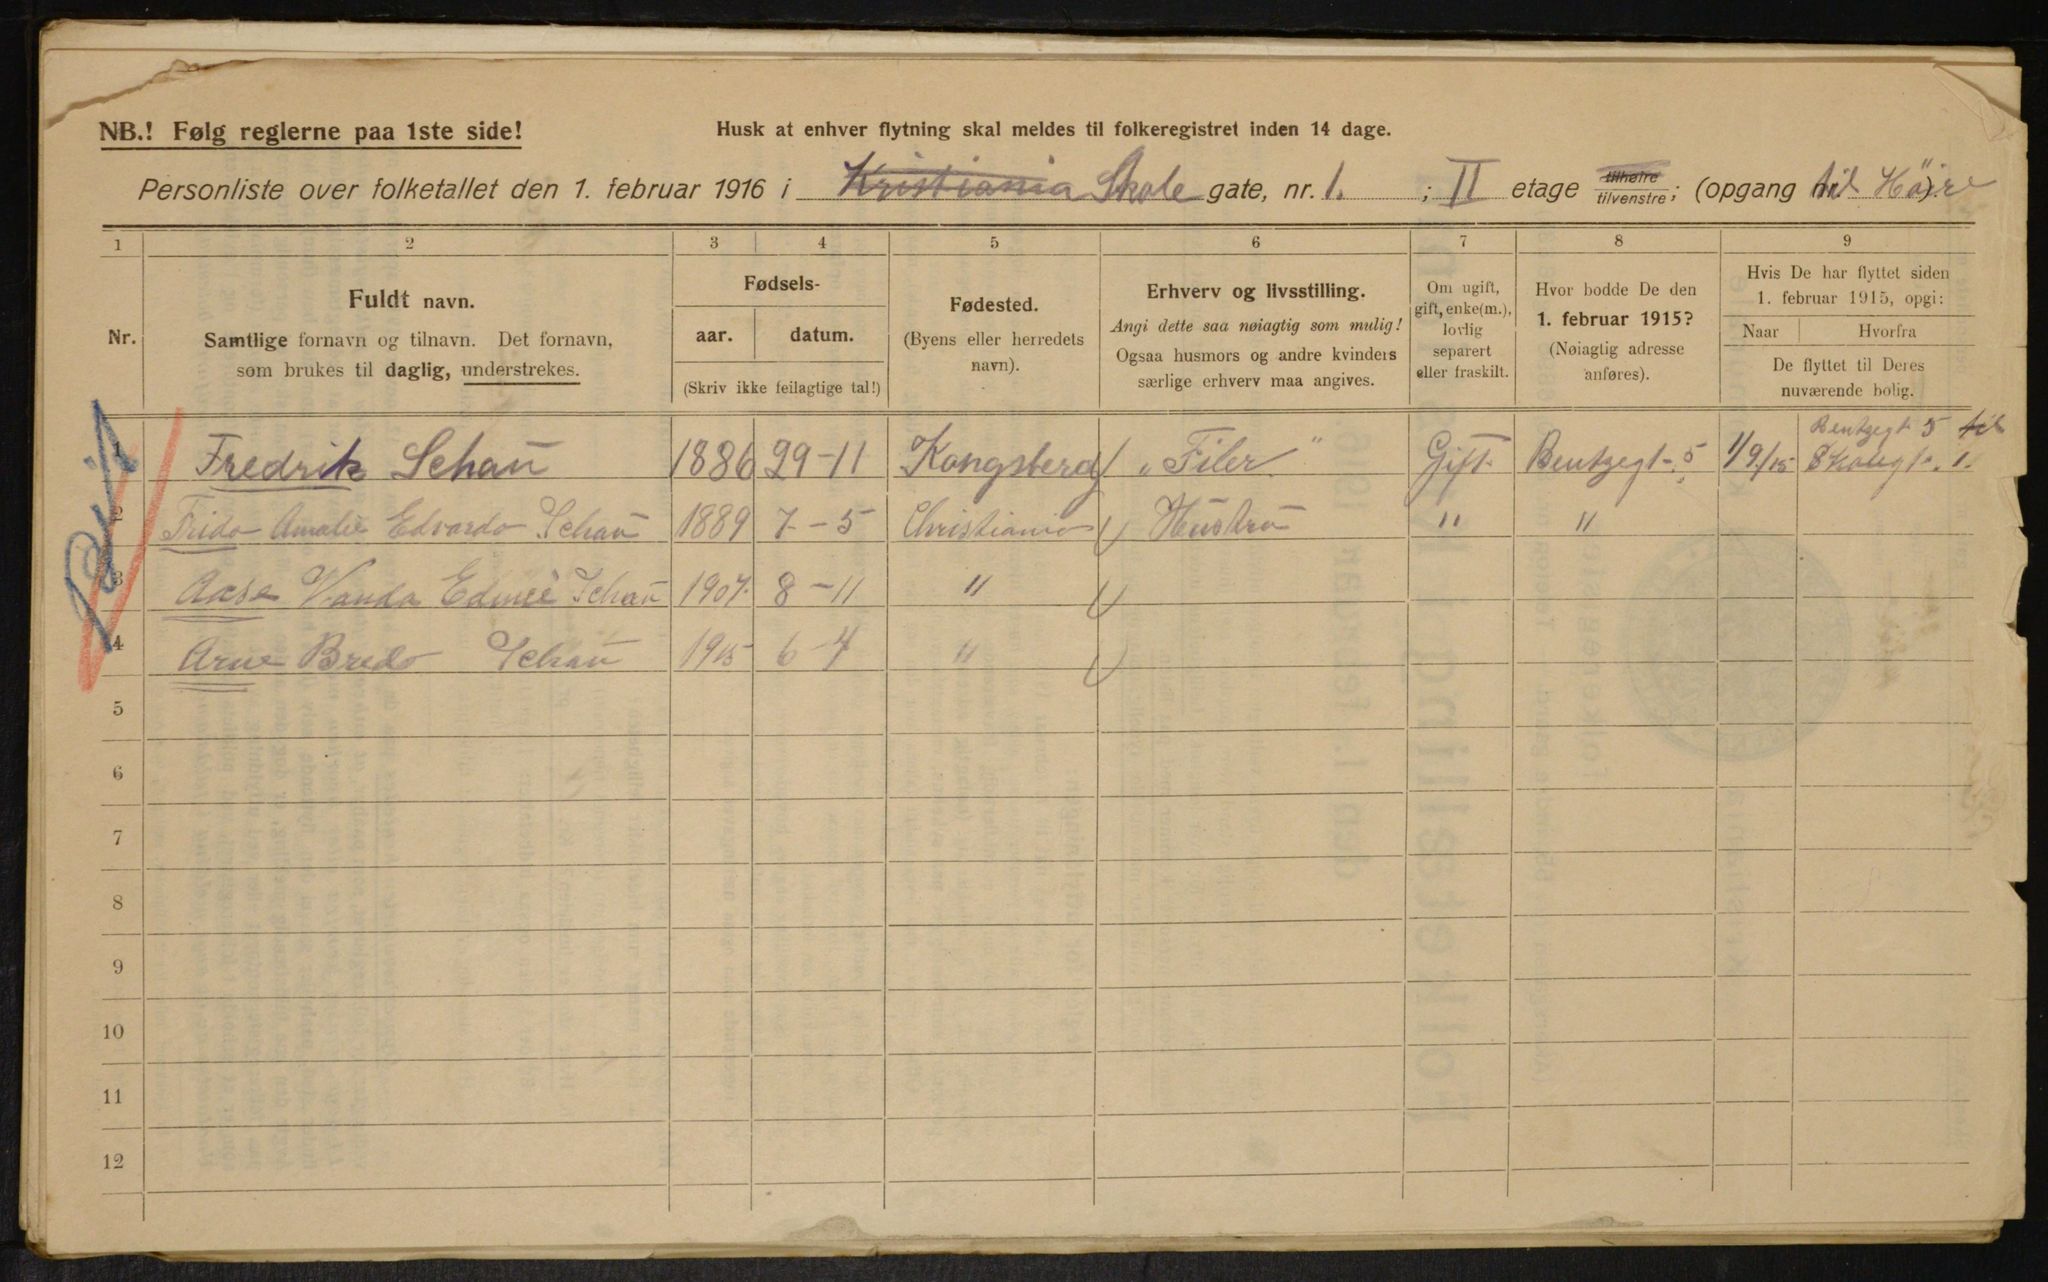 NB.! Følg reglerne paa 1ste side!
Husk at enhver flytning skal meldes til folkeregistret inden 14 dage.
Personliste over folketallet den 1. februar 1916 i Kristiania Skole gate, nr. 1. ; II etage tilhøire tilvenstre; (opgang til Höire
1 2 3 4 5 6 7 8 9
Nr.
Fuldt navn.
Samtlige fornavn og tilnavn. Det fornavn,
som brukes til daglig, understrekes.
Fødsels-
aar. datum.
(Skriv ikke feilagtige tal!)
Fødested.
(Byens eller herredets
navn).
Erhverv og livsstilling.
Angi dette saa nøiagtig som mulig!
Ogsaa husmors og andre kvinders
særlige erhverv maa angives.
Om ugift,
gift, enke(m.),
lovlig
separert
eller fraskilt.
Hvor bodde De den
1. februar 1915?
(Nøiagtig adresse
anføres).
Hvis De har flyttet siden
1. februar 1915, opgi:
Naar Hvorfra
De flyttet til Deres
nuværende bolig.
1 Fredrik Schaū 1886 29-11 Kongsberg "Filer" Gift Bentzegt. 5 1/9/15 Bentzegt 5 til
2 Frida Amalie Edvarda Schaū 1889 7-5 Christiania Hūstrū " "
3 Aase Vanda Schaū 1907. 8-11 "
4 Arne Bredo Schaū 1915 6-4 "
5
6
7
8
9
10
11
12